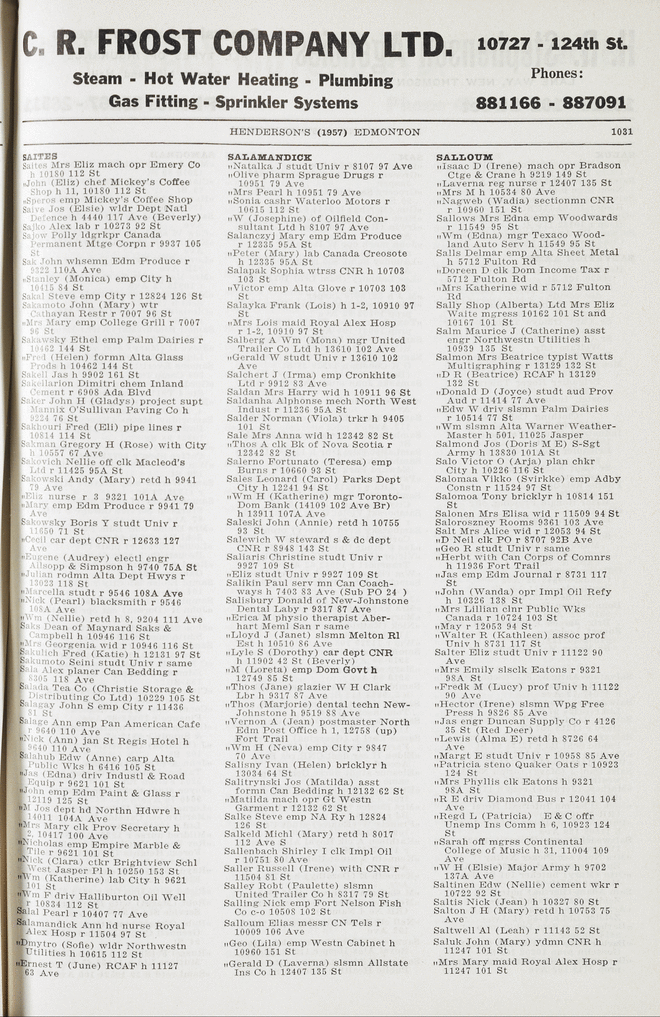 C. R. FROST COMPANY LTD.
10727 - 124th St.
Steam - Hot Water Heating - Plumbing
Gas Fitting - Sprinkler Systems
Phones:
881166 - 887091
HENDERSON'S (1957) EDMONTON 1031
SAITES
Saites Mrs Eliz mach opr Emery Co
h 10180 112 St
„John (Eliz) chef Mickey's Coffee
Shop h 11, 10180 112 St
„Speros emp Mickey's Coffee Shop
Saive Jos (Elsie) wldr Dept Natl
Defence h 4440 117 Ave (Beverly)
Sajko Alex lab r 10273 92 St
Sajow Polly ldgrkpr Canada
Permanent Mtge Corpn r 9937 105
St
Sak John whsemn Edm Produce r
9322 110A Ave
„Stanley (Monica) emp City h
10415 84 St
Sakal Steve emp City r 12824 126 St
Sakamoto John (Mary) wtr
Cathayan Restr r 7007 96 St
„Mrs Mary emp College Grill r 7007
96 St
Sakawsky Ethel emp Palm Dairies r
10462 144 St
„Fred (Helen) formn Alta Glass
Prods h 10462 144 St
Sakell Jas h 9902 161 St
Sakellarion Dimitri chem Inland
Cement r 6908 Ada Blvd
Saker John H (Gladys) project supt
Mannix O'Sullivan Paving Co h
9224 76 St
Sakhouri Fred (Eli) pipe lines r
10814 114 St
Sakman Gregory H (Rose) with City
h 10557 67 Ave
Sakovich Nellie off clk Macleod's
Ltd r 11425 95A St
Sakowski Andy (Mary) retd h 9941
79 Ave
„Eliz nurse r 3 9321 101A Ave
„Mary emp Edm Produce r 9941 79
Ave
Sakowsky Boris Y studt Univ r
11650 71 St
„Cecil car dept CNR r 12633 127
Ave
„Eugene (Audrey) electl engr
Allsopp & Simpson h 9740 75A St
„Julian rodmn Alta Dept Hwys r
12023 118 St
„Marcella studt r 9546 108A Ave
„Nick (Pearl) blacksmith r 9546
108A Ave
„Wm (Nellie) retd h 8, 9204 111 Ave
Saks Dean of Maynard Saks &
Campbell h 10946 116 St
„Mrs Georgenia wid r 10946 116 St
Sakulich Fred (Katie) h 12131 97 St
Sakumoto Seini studt Univ r same
Sala Alex planer Can Bedding r
8305 118 Ave
Salada Tea Co (Christie Storage &
Distributing Co Ltd) 10229 105 St
Salagay John S emp City r 11436
81 St
Salage Ann emp Pan American Cafe
r 9640 110 Ave
„Nick (Ann) jan St Regis Hotel h
9640 110 Ave
Salahub Edw (Anne) carp Alta
Public Wks h 6416 105 St
„Jas (Edna) driv Industl & Road
Equip r 9621 101 St
„John emp Edm Paint & Glass r
12119 125 St
„M Jos dept hd Northn Hdwre h
14011 104A Ave
„Mrs Mary clk Prov Secretary h
2, 10417 100 Ave
„Nicholas emp Empire Marble &
Tile r 9621 101 St
„Nick (Clara) ctkr Brightview Schl
West Jasper Pl h 10250 153 St
„Wm (Katherine) lab City h 9621
101 St
„Wm F driv Halliburton Oil Well
r 10834 112 St
Salal Pearl r 10407 77 Ave
Salamandick Ann hd nurse Royal
Alex Hosp r 11504 97 St
„Dmytro (Sofie) wldr Northwestn
Utilities h 10615 112 St
„Ernest T (June) RCAF h 11127
63 Ave
SALAMANDICK
„Natalka J studt Univ r 8107 97 Ave
„Olive pharm Sprague Drugs r
10951 79 Ave
„Mrs Pearl h 10951 79 Ave
„Sonia cashr Waterloo Motors r
10615 112 St
„W (Josephine) of Oilfield Con-
sultant Ltd h 8107 97 Ave
Salanczyj Mary emp Edm Produce
r 12335 95A St
„Peter (Mary) lab Canada Creosote
h 12335 95A St
Salapak Sophia wtrss CNR h 10703
103 St
„Victor emp Alta Glove r 10703 103
St
Salayka Frank (Lois) h 1-2, 10910 97
St
„Mrs Lois maid Royal Alex Hosp
r 1-2, 10910 97 St
Salberg A Wm (Mona) mgr United
Trailer Co Ltd h 13610 102 Ave
„Gerald W studt Univ r 13610 102
Ave
Salchert J (Irma) emp Cronkhite
Ltd r 9912 83 Ave
Saldan Mrs Harry wid h 10911 96 St
Saldanha Alphonse mech North West
Indust r 11236 95A St
Salder Norman (Viola) trkr h 9405
101 St
Sale Mrs Anna wid h 12342 82 St
„Thos A clk Bk of Nova Scotia r
12342 82 St
Salerno Fortunato (Teresa) emp
Burns r 10660 93 St
Sales Leonard (Carol) Parks Dept
City h 12241 94 St
„Wm H (Katherine) mgr Toronto-
Dom Bank (14109 102 Ave Br)
h 13911 107A Ave
Saleski John (Annie) retd h 10755
93 St
Salewich W steward s & dc dept
CNR r 8948 143 St
Saliaris Christine studt Univ r
9927 109 St
„Eliz studt Univ r 9927 109 St
Salikin Paul serv mn Can Coach-
ways h 7403 83 Ave (Sub PO 24 )
Salisbury Donald of New-Johnstone
Dental Laby r 9317 87 Ave
„Erica M physio therapist Aber-
hart Meml San r same
„Lloyd J (Janet) slsmn Melton Rl
Est h 10510 86 Ave
„Lyle S (Dorothy) car dept CNR
h 11902 42 St (Beverly)
„M (Loreta) emp Dom Govt h
12749 85 St
„Thos (Jane) glazier W H Clark
Lbr h 9317 87 Ave
„Thos (Marjorie) dental techn New-
Johnstone h 9519 88 Ave
„Vernon A (Jean) postmaster North
Edm Post Office h 1, 12758 (up)
Fort Trail
„Wm H (Neva) emp City r 9847
70 Ave
Salisny Ivan (Helen) bricklyr h
13034 64 St
Salitrynski Jos (Matilda) asst
formn Can Bedding h 12132 62 St
„Matilda mach opr Gt Westn
Garment r 12132 62 St
Salke Steve emp NA Ry h 12824
126 St
Salkeld Michl (Mary) retd h 8017
112 Ave S
Sallenbach Shirley I clk Impl Oil
r 10751 80 Ave
Saller Russell (Irene) with CNR r
11504 81 St
Salley Robt (Paulette) slsmn
United Trailer Co h 8317 79 St
Salling Nick emp Fort Nelson Fish
Co c-o 10508 102 St
Salloum Elias messr CN Tels r
10009 106 Ave
„Geo (Lila) emp Westn Cabinet h
10960 151 St
„Gerald D (Laverna) slsmn Allstate
Ins Co h 12407 135 St
SALLOUM
„Isaac D (Irene) mach opr Bradson
Ctge & Crane h 9219 149 St
„Laverna reg nurse r 12407 135 St
„Mrs M h 10534 80 Ave
„Nagweb (Wadia) sectionmn CNR
r 10960 151 St
Sallows Mrs Edna emp Woodwards
r 11549 95 St
„Wm (Edna) mgr Texaco Wood-
land Auto Serv h 11549 95 St
Salls Delmar emp Alta Sheet Metal
h 5712 Fulton Rd
„Doreen D clk Dom Income Tax r
5712 Fulton Rd
„Mrs Katherine wid r 5712 Fulton
Rd
Sally Shop (Alberta) Ltd Mrs Eliz
Waite mgress 10162 101 St and
10167 101 St
Salm Maurice J (Catherine) asst
engr Northwestn Utilities h
10939 135 St
Salmon Mrs Beatrice typist Watts
Multigraphing r 13129 132 St
„D R (Beatrice) RCAF h 13129
132 St
„Donald D (Joyce) studt aud Prov
Aud r 11414 77 Ave
„Edw W driv slsmn Palm Dairies
r 10514 77 St
„Wm slsmn Alta Warner Weather-
Master h 501, 11025 Jasper
Salmond Jos (Doris M E) S-Sgt
Army h 13830 101A St
Salo Victor O (Arja) plan chkr
City h 10226 116 St
Salomaa Vikko (Svirkke) emp Adby
Constn r 11524 97 St
Salomoa Tony bricklyr h 10814 151
St
Salonen Mrs Elisa wid r 11509 94 St
Saloroszney Rooms 9361 103 Ave
Salt Mrs Alice wid r 12053 94 St
„D Neil clk PO r 8707 92B Ave
„Geo R studt Univ r same
„Herbt with Can Corps of Comnrs
h 11936 Fort Trail
„Jas emp Edm Journal r 8731 117
St
„John (Wanda) opr Impl Oil Refy
h 10326 128 St
„Mrs Lillian clnr Public Wks
Canada r 10724 103 St
„May r 12053 94 St
„Walter R (Kathleen) assoc prof
Univ h 8731 117 St
Salter Eliz studt Univ r 11122 90
Ave
„Mrs Emily slsclk Eatons r 9321
98A St
„Fredk M (Lucy) prof Univ h 11122
90 Ave
„Hector (Irene) slsmn Wpg Free
Press h 9826 85 Ave
„Jas engr Duncan Supply Co r 4126
35 St (Red Deer)
„Lewis (Alma E) retd h 8726 64
Ave
„Margt E studt Univ r 10958 85 Ave
„Patricia steno Quaker Oats r 10923
124 St
„Mrs Phyllis clk Eatons h 9321
98A St
„R E driv Diamond Bus r 12041 104
Ave
„Regd L (Patricia) E & C offr
Unemp Ins Comm h 6, 10923 124
St
„Sarah off mgrss Continental
College of Music h 31, 11004 109
Ave
„W H (Elsie) Major Army h 9702
137A Ave
Saltinen Edw (Nellie) cement wkr r
10722 92 St
Saltis Nick (Jean) h 10327 80 St
Salton J H (Mary) retd h 10753 75
Ave
Saltwell Al (Leah) r 11143 52 St
Saluk John (Mary) ydmn CNR h
11247 101 St
„Mrs Mary maid Royal Alex Hosp r
11247 101 St